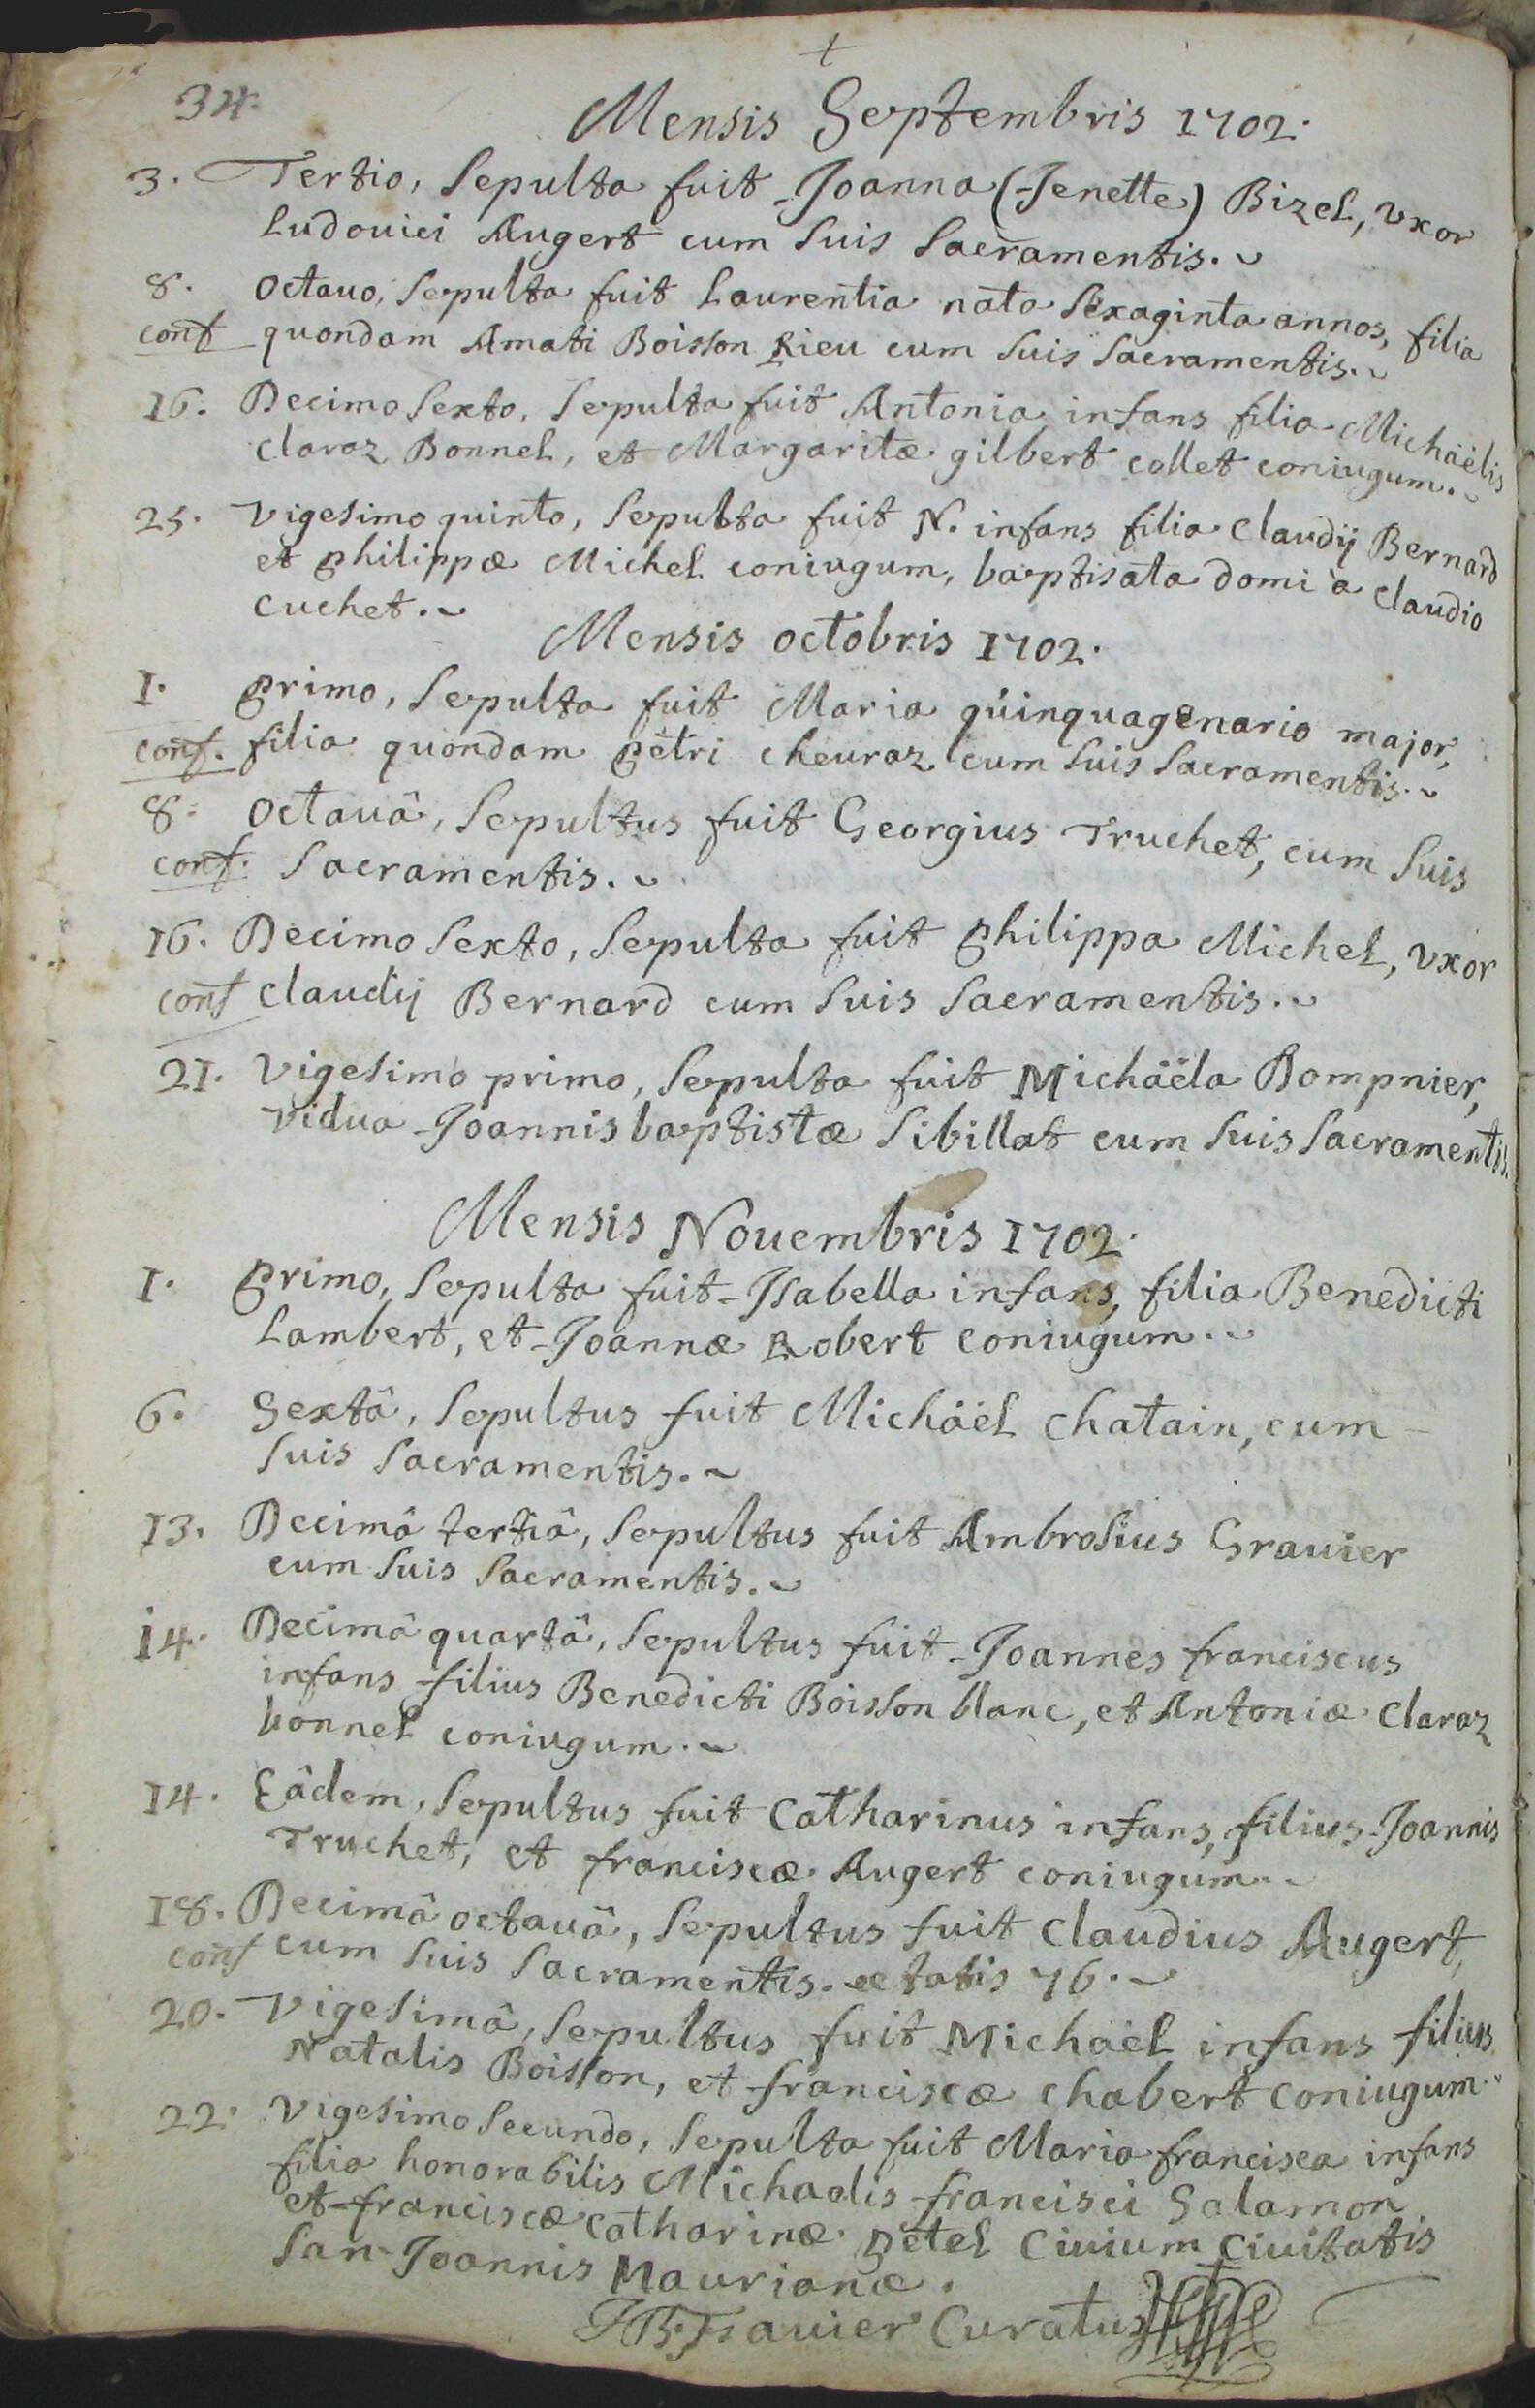 +
34.
Mensis Septembris 1702.
3. Tertio, Sepulta fuit Joanna (Jenette) Bizel, vxor
Ludouici Augert cum Suis Sacramentis.
8. octauo, Sepulta fuit Laurentia nata Sexaginta annos, filia
conf quondam Amati Boisson Rieu cum Suis Sacramentis.
16. Decimo Sexto, Sepulta fuit Antonia infans filia Michäelis
Claraz Bonnel, et Margaritæ gilbert collet coniugum.
25. Vigesimo quinto, Sepulta fuit N. infans filia Claudij Bernard
et philippæ Michel coniugum, baptisata domi à Claudio
Cuchet.
Mensis octobris 1702.
1. primo, Sepulta fuit Maria quinquagenario major,
conf. filia quondam petri cheuraz cum Suis Sacramentis.
8. octauâ, Sepultus fuit Georgius Truchet, cum Suis
conf. Sacramentis.
16. Decimo Sexto, Sepulta fuit philippa Michel, vxor
conf Claudij Bernard cum Suis Sacramentis.
21. Vigesimo primo, Sepulta fuit Michäela Bompnier,
vidua Joannisbaptistæ Sibillat cum Suis Sacramentis.
Mensis Nouembris 1702.
1. primo, Sepulta fuit Isabella infans, filia Benedicti
Lambert, et Joannæ Robert coniugum.
6. Sextâ, Sepultus fuit Michäel Chatain, cum
Suis Sacramentis.
13. Decimâ tertiâ, Sepultus fuit Ambrosius Grauier
cum Suis Sacramentis.
14. Decimâ quartâ, Sepultus fuit Joannes franciscus
infans filius Benedicti Boisson blanc, et Antoniæ Claraz
bonnel coniugum.
14. Eâdem, Sepultus fuit Catharinus infans, filius Joannis
Truchet, et franciscæ Augert coniugum.
18. Decimâ octauâ, Sepultus fuit Claudius Augert,
conf cum Suis Sacramentis. ætatis 76.
20. Vigesimâ, Sepultus fuit Michäel infans filius
Natalis Boisson, et franciscæ chabert coniugum.
22. Vigesimo Secundo, Sepulta fuit Maria francisca infans
filia honorabilis Michaelis francisci Salamon
et franciscæ catharinæ Détel Ciuium Ciuitatis
San Joannis Maurianæ.
Curatus